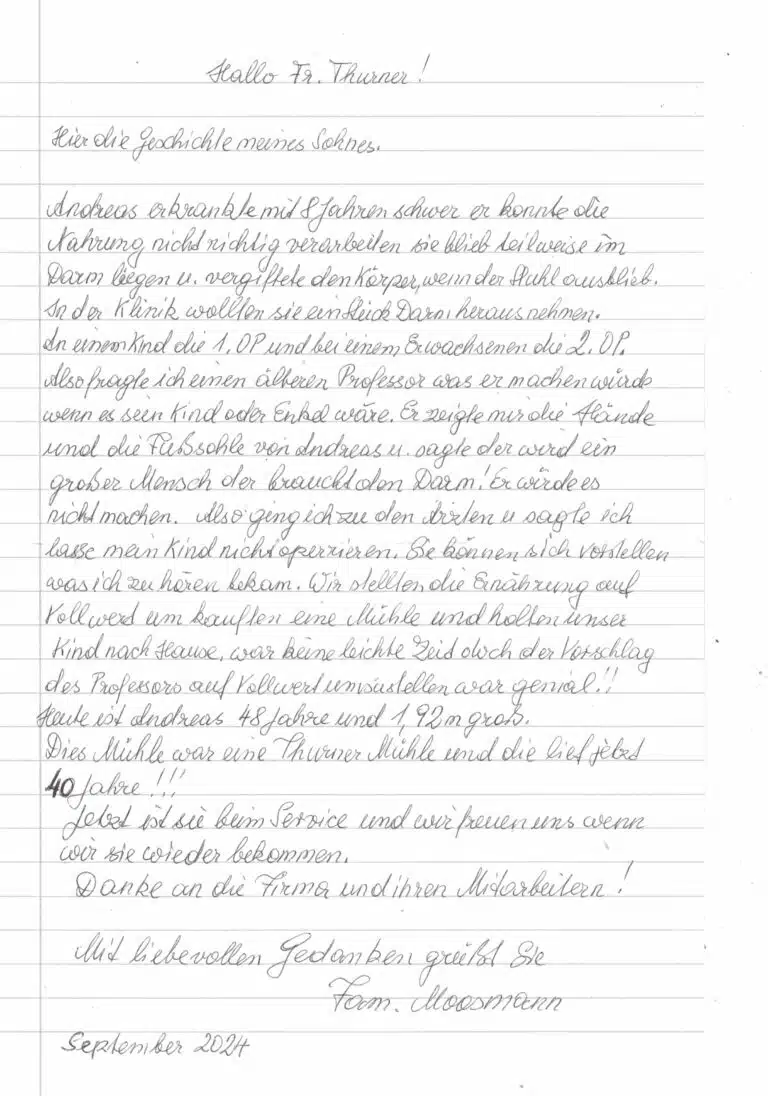 Hallo Fr. Thurner!
Hier die Geschichte meines Sohnes.
Andreas erkrankte mit 8 Jahren schwer er konnte die
Nahrung nicht richtig verarbeiten sie blieb teilweise im
Darm liegen u. vergiftete den Körper, wenn der Stuhl ausblieb.
In der Klinik wollten sie ein Stück Darm heraus nehmen.
An einem Kind die 1. OP und bei einem Erwachsenen die 2. OP.
Also fragte ich einen älteren Professor was er machen würde
wenn es sein Kind oder Enkel wäre. Er zeigte mir die Hände
und die Fußsohle von Andreas u. sagte der wird ein
großer Mensch der braucht den Darm! Er würde es
nicht machen. Also ging ich zu den Ärzten u sagte ich
lasse mein Kind nicht operrieren. Sie können sich vorstellen
was ich zu hören bekam. Wir stellten die Ernährung auf
Vollwert um kauften eine Mühle und holten unser
Kind nach Hause, war keine leichte Zeit doch der Vorschlag
des Professors auf Vollwert umzustellen war genial!!
Heute ist Andreas 48 Jahre und 1,92 m groß.
Dies Mühle war eine Thurner Mühle und die lief jetzt
40 Jahre!!!
Jetzt ist sie beim Service und wir freuen uns wenn
wir sie wieder bekommen.
Danke an die Firma und ihren Mitarbeitern!
Mit liebevollen Gedanken grüßt Sie
Fam. Moosmann
September 2024